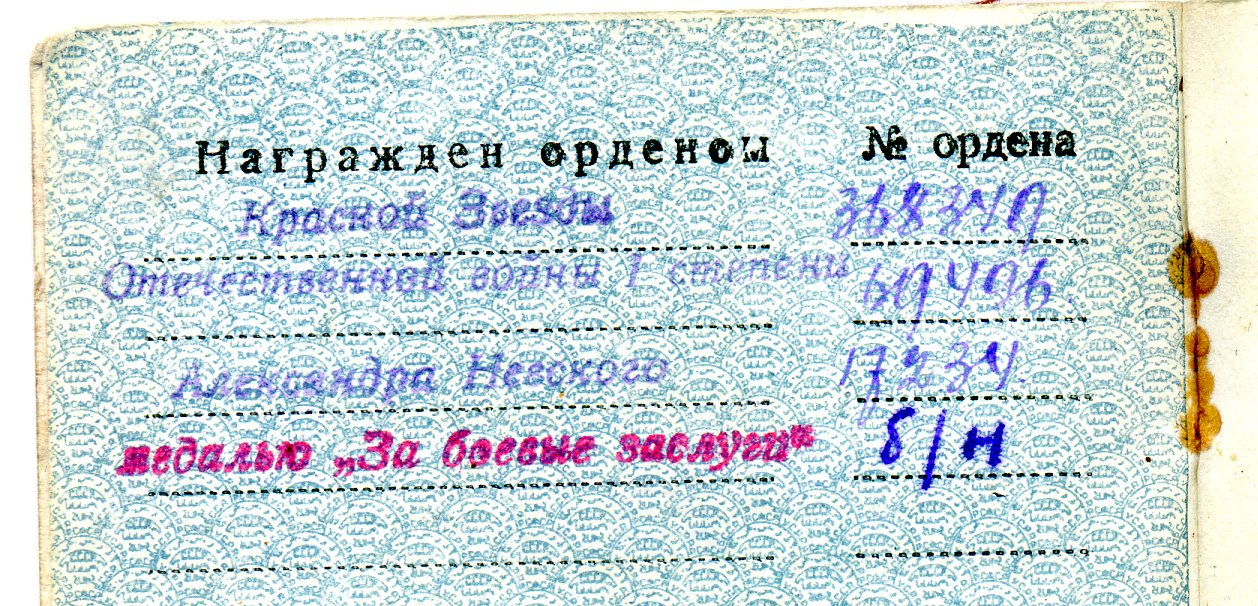 Награжден орденом № ордена
Красной Звезды 3683409
Отечественной войны I степени 69496.
Александра Невского 17234.
медалью „За боевые заслуги“ б/н